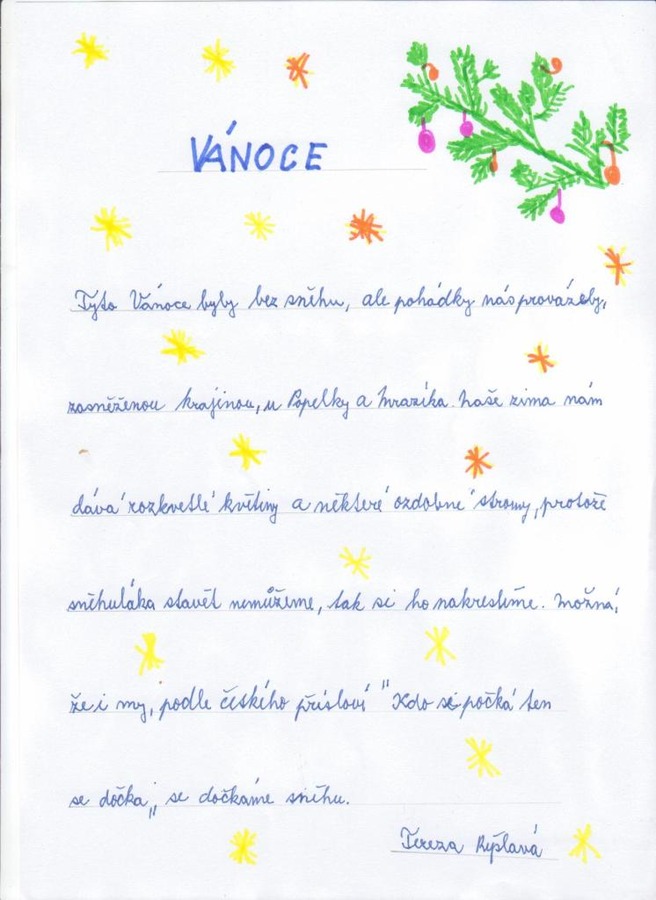 VÁNOCE
Tyto Vánoce byly bez sněhu, ale pohádky nás provázely,
zasněženou krajinou, u Popelky a Mrazíka. Naše zima nám
dává rozkvetlé květiny a některé ozdobné stromy, protože
sněhuláka stavět nemůžeme, tak si ho nakreslíme. Možná,
že i my, podle českého přísloví "Kdo si počká ten
se dočká,, se dočkáme sněhu.
Tereza Ryšlavá